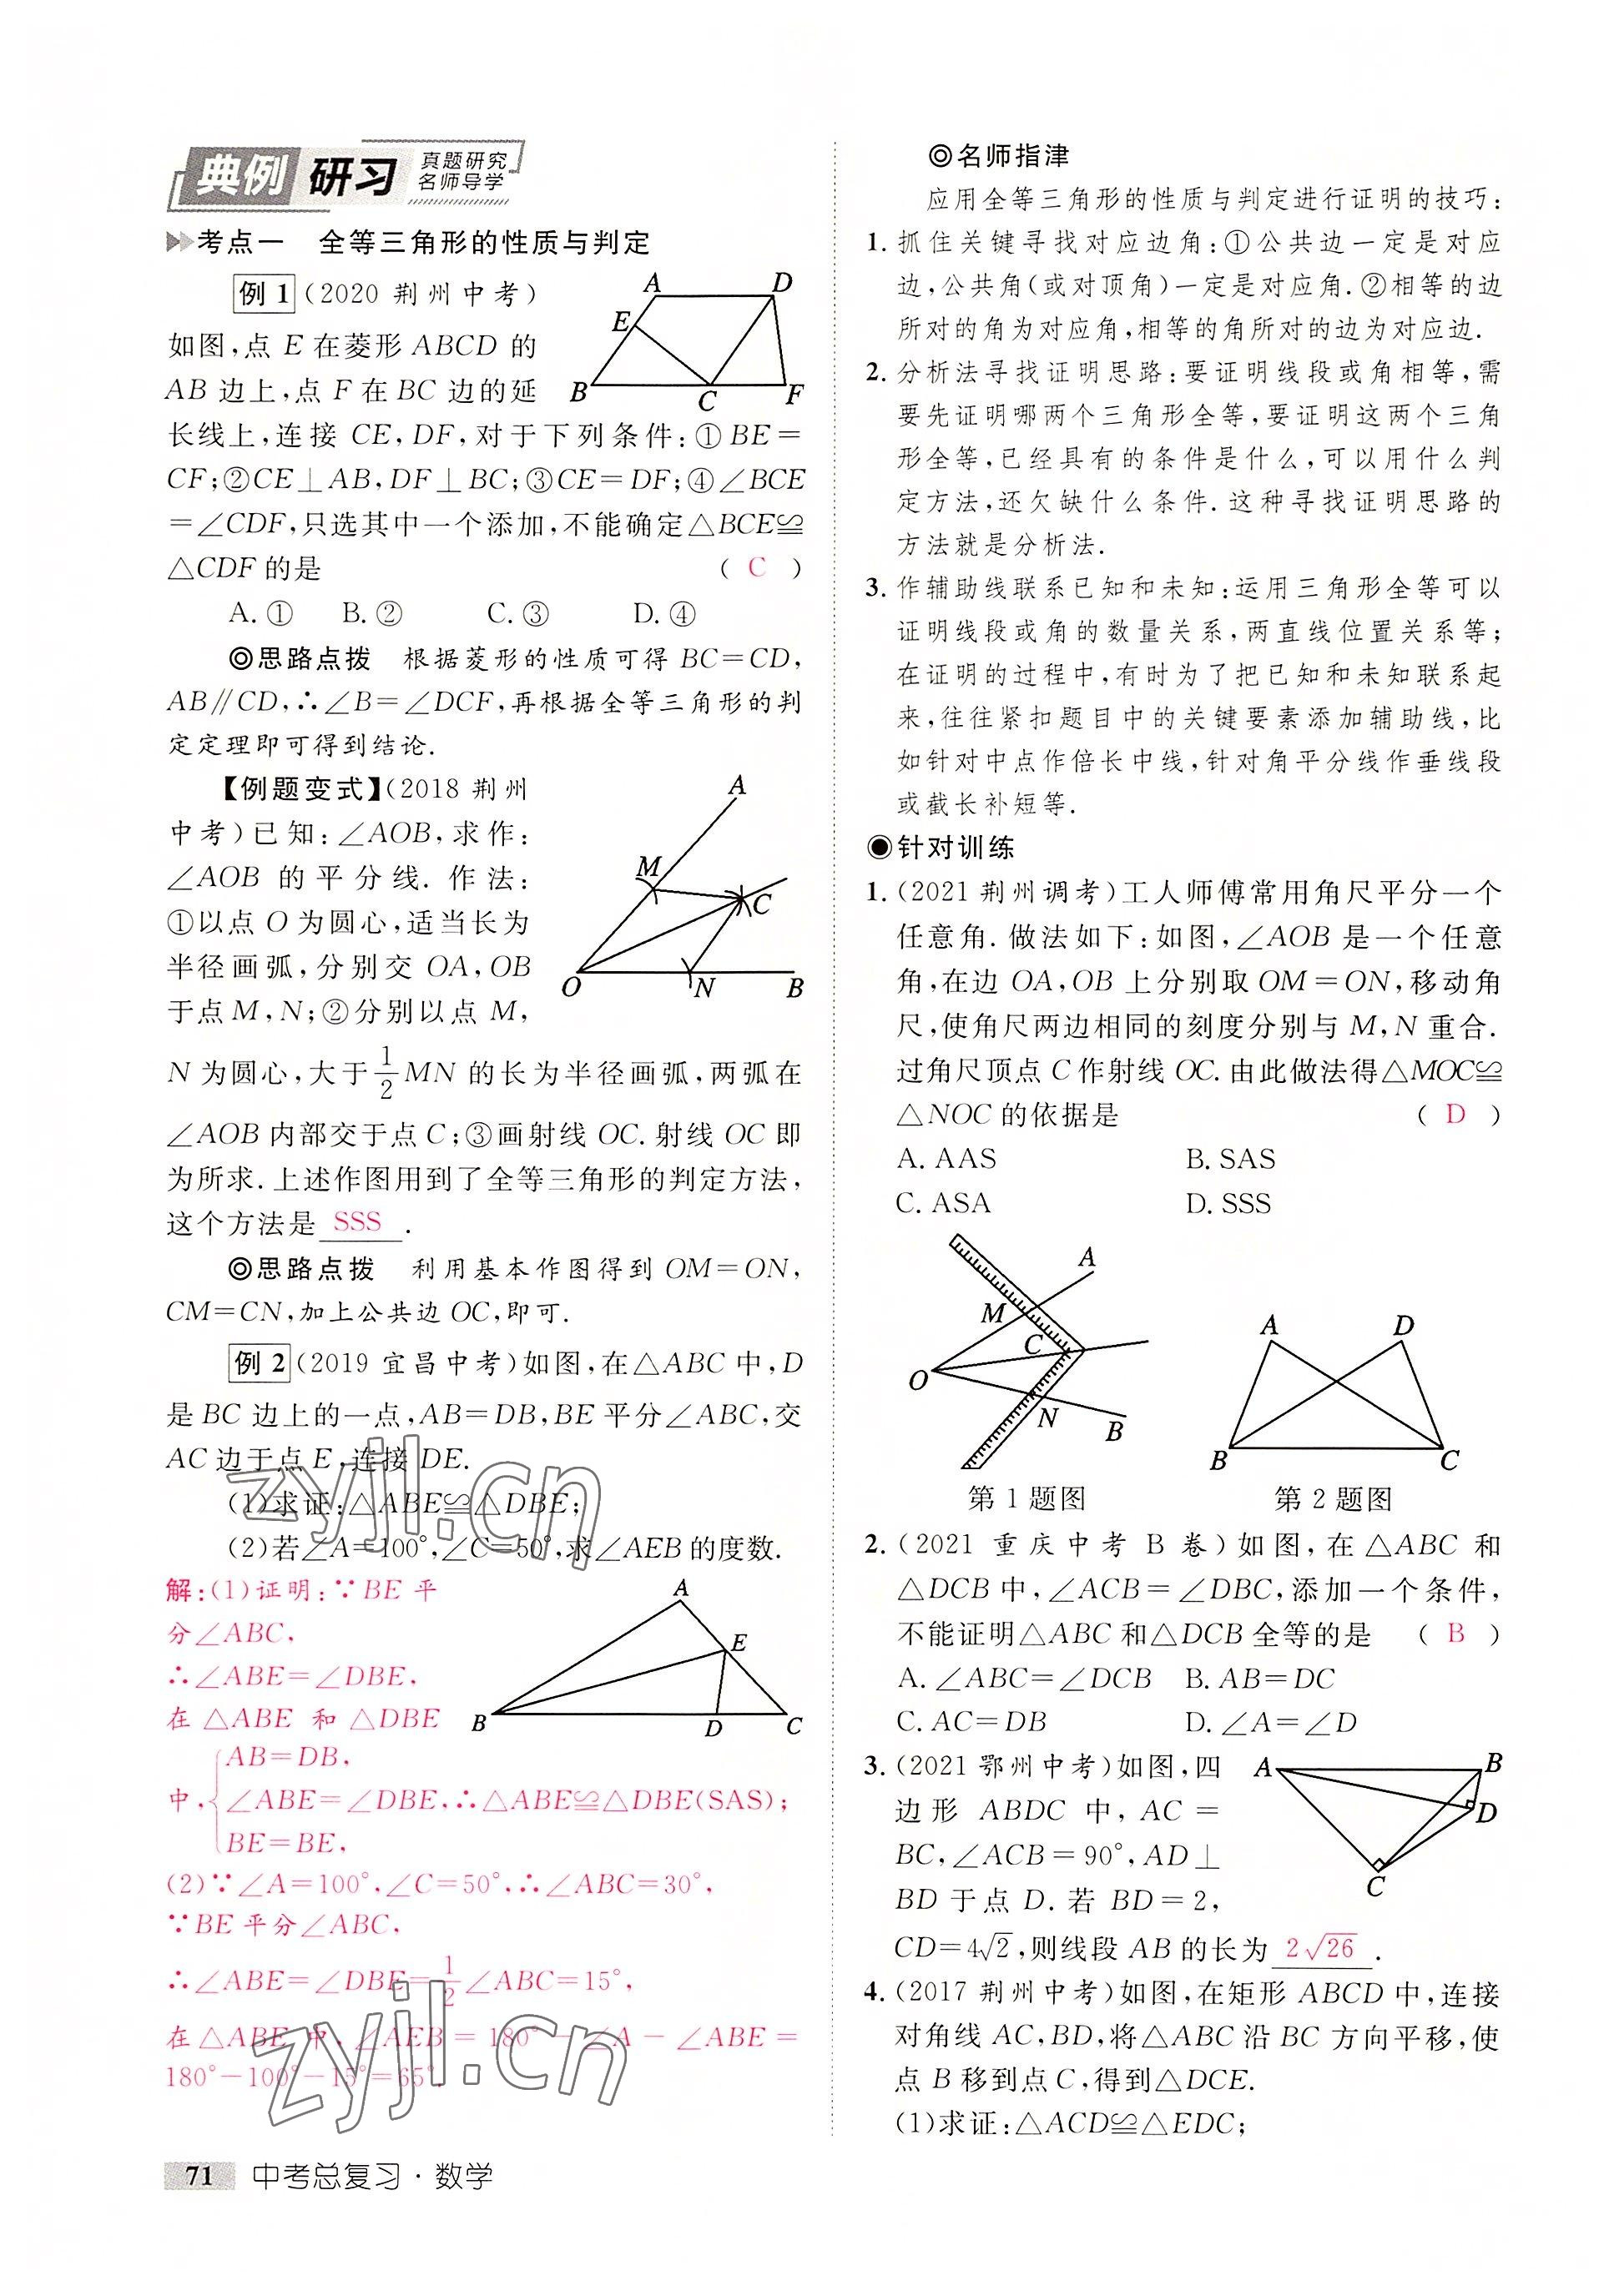 典例 研习 真题研究
名师导学
考点一 全等三角形的性质与判定
例 1 (2020 荆州中考)
如图,点 E 在菱形 ABCD 的
AB 边上,点 F 在 BC 边的延
长线上,连接 CE,DF,对于下列条件:① BE=
CF;②CE⊥AB,DF⊥BC;③CE=DF;④∠BCE
=∠CDF,只选其中一个添加,不能确定△BCE≌
△CDF 的是 ( C )
A. ① B. ② C. ③ D. ④
A D E B C F
◎思路点拨 根据菱形的性质可得 BC=CD,
AB∥CD,∴∠B=∠DCF,再根据全等三角形的判
定定理即可得到结论.
【例题变式】(2018 荆州
中考)已知:∠AOB,求作:
∠AOB 的平分线. 作法:
①以点 O 为圆心,适当长为
半径画弧,分别交 OA,OB
于点 M,N;②分别以点 M,
N 为圆心,大于 1/2 MN 的长为半径画弧,两弧在
∠AOB 内部交于点 C;③画射线 OC. 射线 OC 即
为所求. 上述作图用到了全等三角形的判定方法,
这个方法是 SSS .
A M C O N B
◎思路点拨 利用基本作图得到 OM=ON,
CM=CN,加上公共边 OC,即可.
例 2 (2019 宜昌中考)如图,在△ABC 中,D
是 BC 边上的一点,AB=DB,BE 平分∠ABC,交
AC 边于点 E,连接 DE.
(1)求证:△ABE≌△DBE;
(2)若∠A=100°,∠C=50°,求∠AEB 的度数.
zyjl.cn
解:(1)证明:∵BE 平
分∠ABC,
∴∠ABE=∠DBE,
在 △ABE 和 △DBE
AB=DB,
中,∠ABE=∠DBE,∴△ABE≌△DBE(SAS);
BE=BE,
A E B D C
(2)∵∠A=100°,∠C=50°,∴∠ABC=30°,
∵BE 平分∠ABC,
∴∠ABE=∠DBE=1/2 ∠ABC=15°,
在△ABE 中,∠AEB = 180° − ∠A − ∠ABE =
180°−100°−15°=65°.
zyjl.cn
71 中考总复习·数学
◎名师指津
应用全等三角形的性质与判定进行证明的技巧:
1. 抓住关键寻找对应边角:①公共边一定是对应
边,公共角(或对顶角)一定是对应角. ②相等的边
所对的角为对应角,相等的角所对的边为对应边.
2. 分析法寻找证明思路:要证明线段或角相等,需
要先证明哪两个三角形全等,要证明这两个三角
形全等,已经具有的条件是什么,可以用什么判
定方法,还欠缺什么条件. 这种寻找证明思路的
方法就是分析法.
3. 作辅助线联系已知和未知:运用三角形全等可以
证明线段或角的数量关系,两直线位置关系等;
在证明的过程中,有时为了把已知和未知联系起
来,往往紧扣题目中的关键要素添加辅助线,比
如针对中点作倍长中线,针对角平分线作垂线段
或截长补短等.
◉针对训练
1. (2021 荆州调考)工人师傅常用角尺平分一个
任意角. 做法如下:如图,∠AOB 是一个任意
角,在边 OA,OB 上分别取 OM=ON,移动角
尺,使角尺两边相同的刻度分别与 M,N 重合.
过角尺顶点 C 作射线 OC. 由此做法得△MOC≌
△NOC 的依据是 ( D )
A. AAS B. SAS
C. ASA D. SSS
A M C O N B
第 1 题图
A D B C
第 2 题图
2. (2021 重庆中考 B 卷)如图,在 △ABC 和
△DCB 中,∠ACB=∠DBC,添加一个条件,
不能证明△ABC 和△DCB 全等的是 ( B )
A. ∠ABC=∠DCB B. AB=DC
C. AC=DB D. ∠A=∠D
3. (2021 鄂州中考)如图,四
边形 ABDC 中,AC =
BC,∠ACB=90°,AD⊥
BD 于点 D. 若 BD=2,
CD=4√2,则线段 AB 的长为 2√26 .
A B D C
4. (2017 荆州中考)如图,在矩形 ABCD 中,连接
对角线 AC,BD,将△ABC 沿 BC 方向平移,使
点 B 移到点 C,得到△DCE.
(1)求证:△ACD≌△EDC;